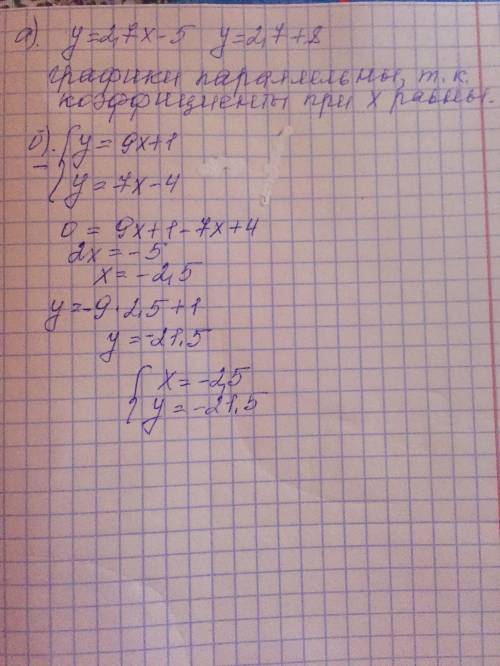 а). y=2,7x-5 y=2,7+8
графики параллельны, т.к.
коэффициенты при x равны.
б). { y = 9x+1
- { y = 7x-4
0 = 9x+1-7x+4
2x = -5
x = -2,5
y = -9·2,5+1
y = -21.5
{ x = -2,5
{ y = -21.5